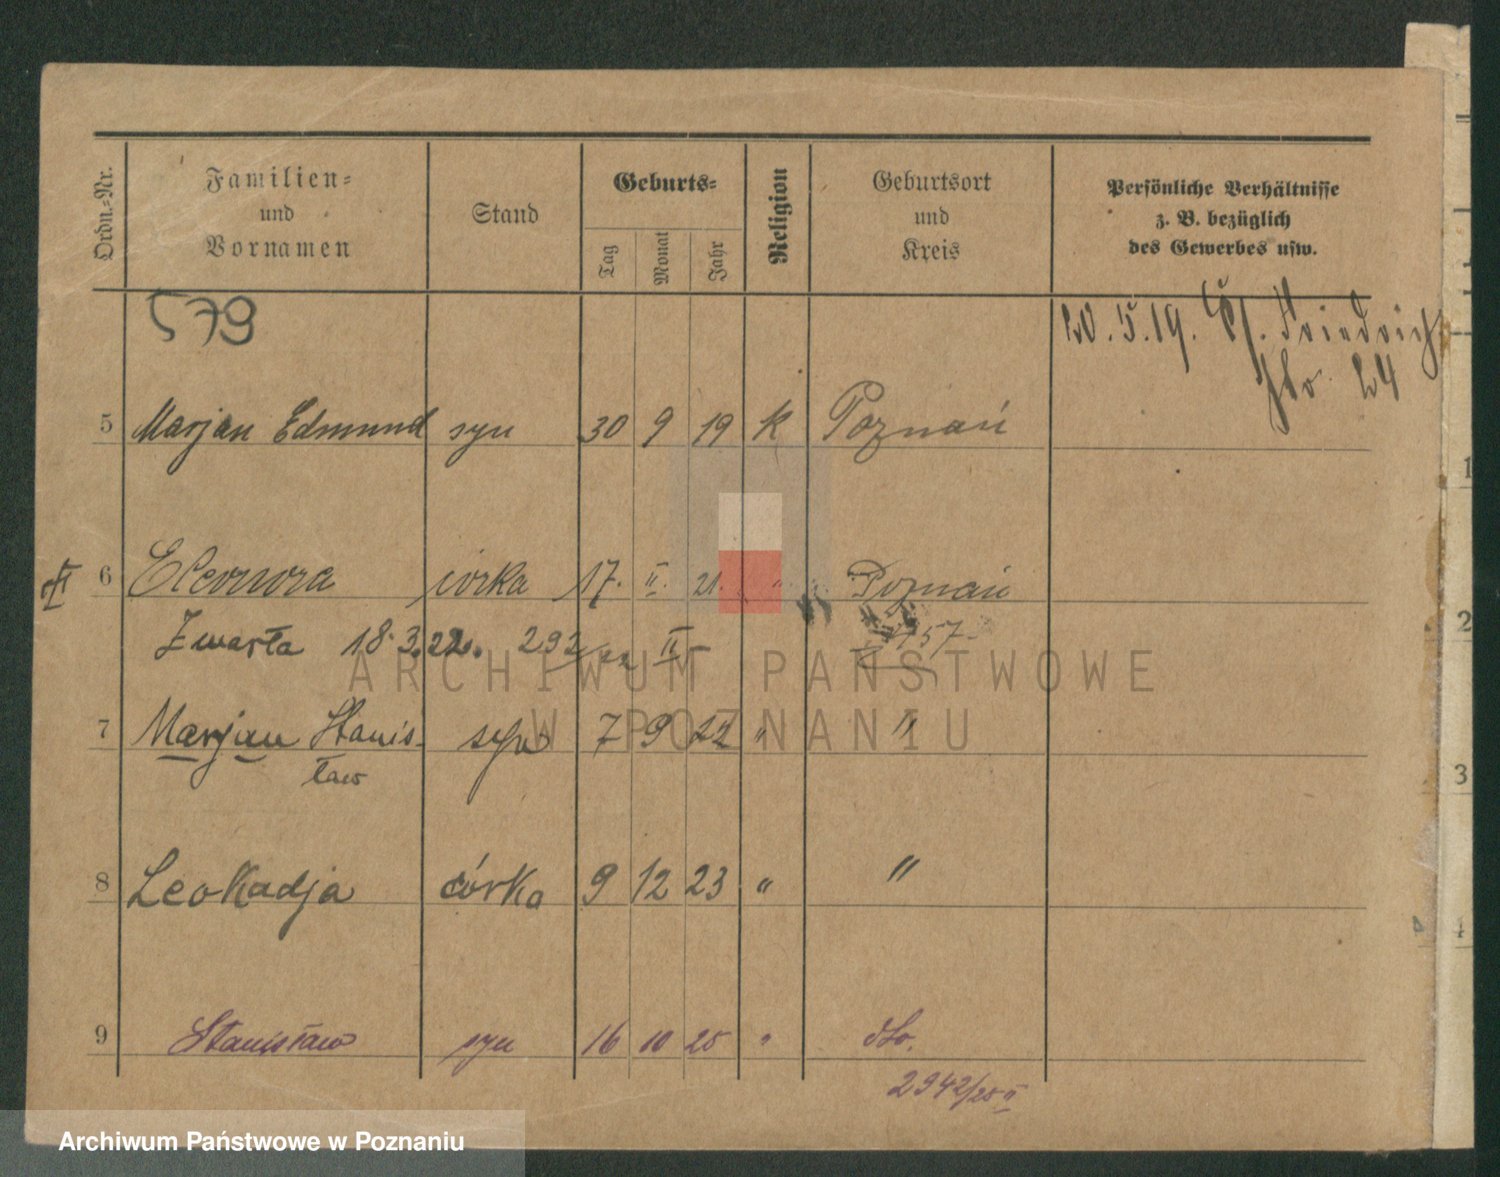 Ordn.-Nr.
Familien-
und
Vornamen
Stand
Geburts-
Tag
Monat
Jahr
Religion
Geburtsort
und
Kreis
Persönliche Verhältnisse
z. B. bezüglich
des Gewerbes usw.
579
20.5.19. Friedrich
24
5 Marjan Edmund syn 30 9 19 K Poznań
6 Eleonora córka 17. II. 21. " Poznań
Zmarła 18.3.22. 292/22 II 757
7 Marjan Stanis- syn 7 9 22 " "
ław
8 Leokadja córka 9 12 23 " "
9 Stanisław syn 16 10 25 " dto.
2942/25 II
ARCHIWUM PAŃSTWOWE
W POZNANIU
Archiwum Państwowe w Poznaniu
1
2
3
4